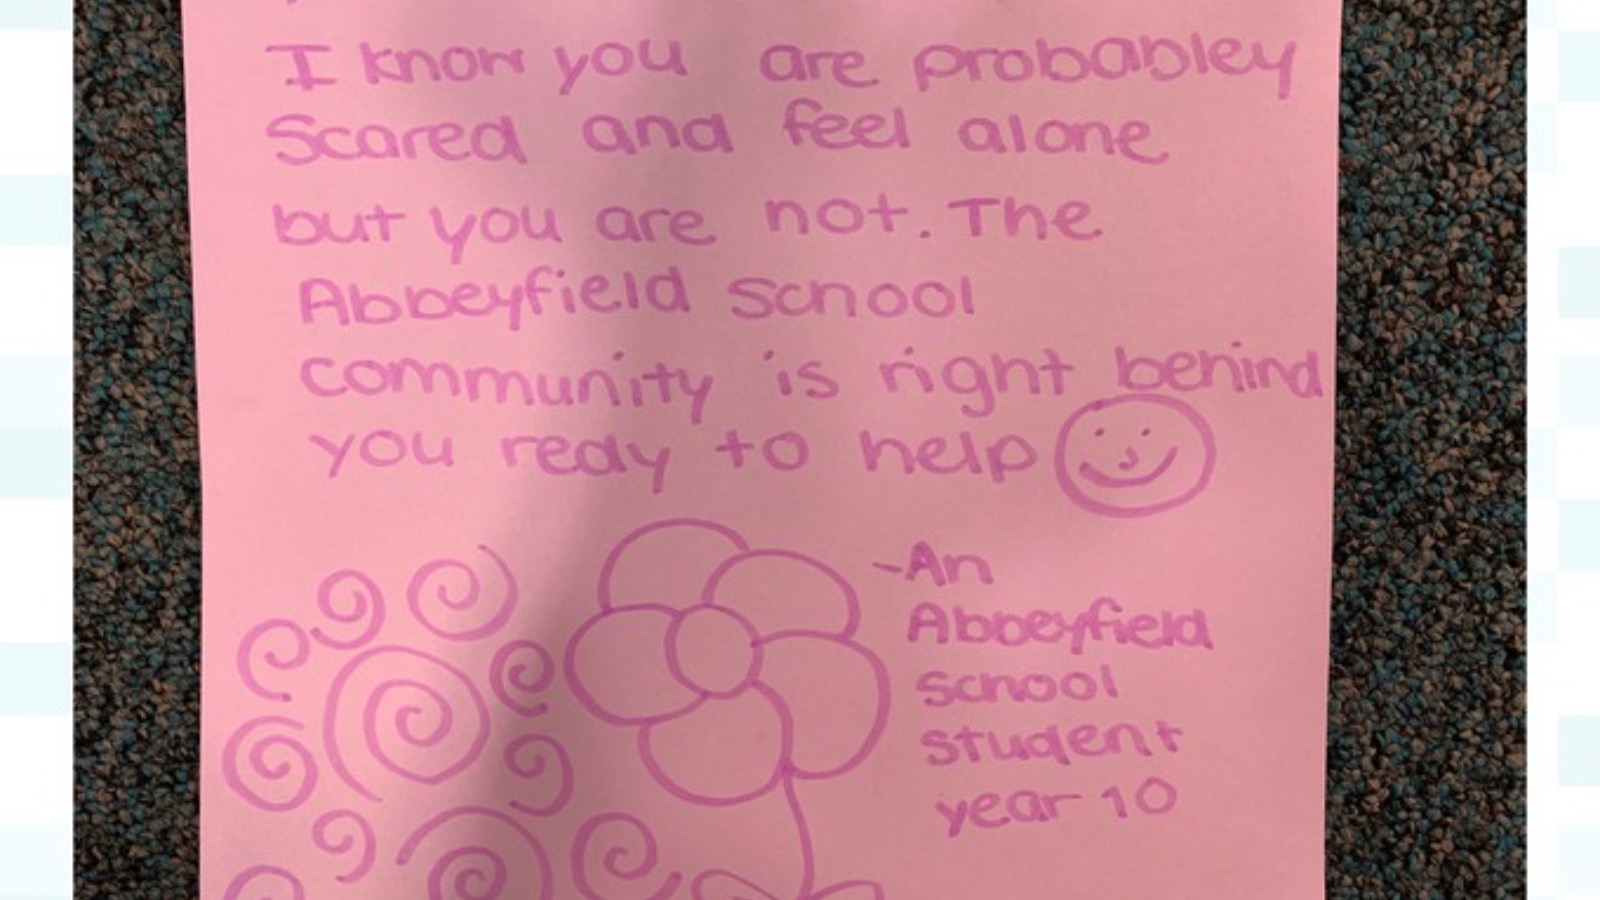 I know you are probabley
Scared and feel alone
but you are not. The
Abbeyfield School
community is right behind
you redy to help
-An
Abbeyfield
School
student
year 10